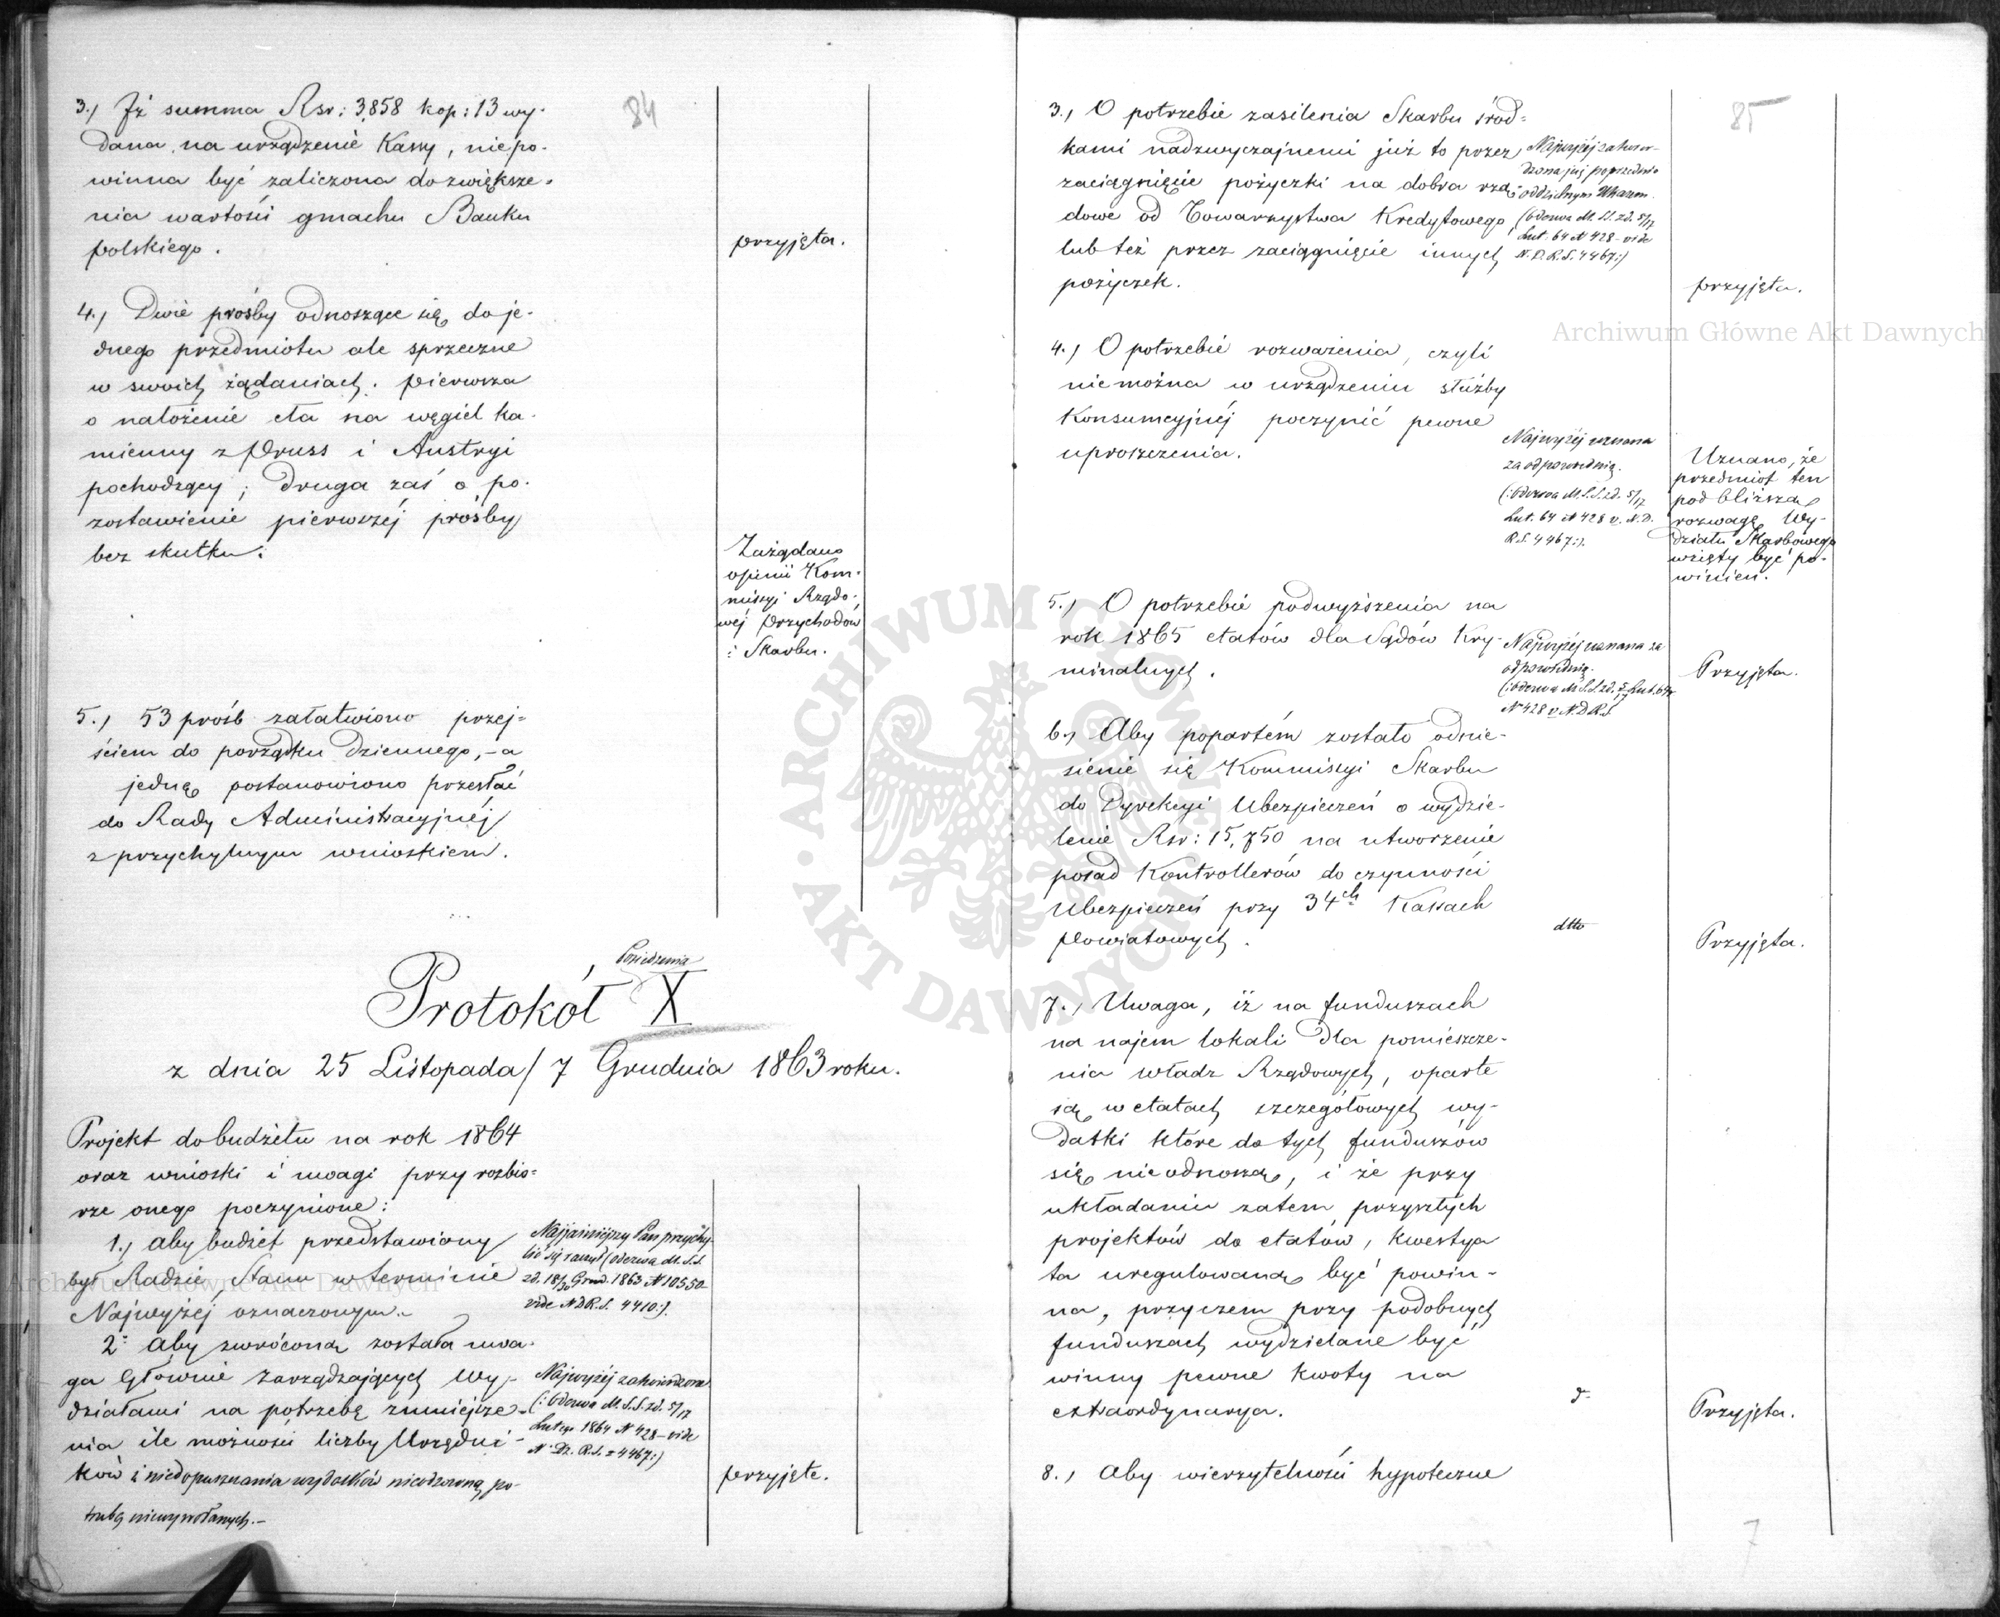 84
3.) Iż summa Rsr: 3,858 kop: 13 wy-
dana na urządzenie Kassy, niepo-
winna być zaliczona do zwiększe-
nia wartości gmachu Banku
polskiego.
przyjęta.
4.) Dwie prośby odnoszące się do je-
dnego przedmiotu ale sprzeczne
w swoich żądaniach. pierwsza
o nałożenie cła na węgiel ka-
mienny z Pruss i Austryi
pochodzący; druga zaś o po-
zostawienie pierwszéj prośby
bez skutku.
Zażądano
opinii Kom-
missyi Rządo-
wéj Przychodów
i Skarbu.
5.) 53 prośb załatwiono przej-
ściem do porządku dziennego, - a
jednę postanowiono przesłać
do Rady Administracyjnéj
z przychylnym wnioskiem.
Posiedzenia
Protokół X
z dnia 25 Listopada / 7 Grudnia 1863 roku.
Projekt do budżetu na rok 1864
oraz wnioski i uwagi przy rozbio-
rze onego poczynione:
1.) aby budżet przedstawiony
był Radzie Stanu w terminie
Najwyżéj oznaczonym.-
Najjaśniejszy Pan przychy-
lić się raczył (odezwa M. S. S.
zd. 18/30 Grud. 1863 N 10550
vide N D R. S. 4410:).
2° aby zwróconą została uwa-
ga Głównie Zarządzających Wy-
działami na potrzebę zmniejsze-
nia ile możności liczby Urzędni-
ków i niedopuszczania wydatków nieodzowną po-
trzebą niewywołanych.-
Najwyżéj zatwierdzona
(: Odezwa M. S. S. zd. 5/17
Lutego 1864 N 428 - vide
N Dz. R. S. 4467:)
przyjęte.
85
3.) O potrzebie zasilenia Skarbu środ-
kami nadzwyczajnemi już to przez
zaciągnięcie pożyczki na dobra rzą-
dowe od Towarzystwa Kredytowego,
lub też przez zaciągnięcie innych
pożyczek.
Najwyżéj zatwier-
dzona już poprzednio
oddzielnym Ukazem
(odezwa M. S. S. zd. 5/17
Lut. 64 N 428 - vide
N. D. R. S. 4467:)
przyjęta.
4.) O potrzebie rozważenia, czyli
niemożna w urządzeniu służby
Konsumcyjnéj poczynić pewne
uproszczenia.
Najwyżéj uznana
za odpowiednią.
(: Odezwa M. S. S. zd. 5/17
Lut. 64 N 428 v. N. D.
R. S. 4467:).
Uznano, że
przedmiot ten
pod bliższą
rozwagę Wy-
działu Skarbowego
wzięty być po-
winien.
5.) O potrzebie podwyższenia na
rok 1865 etatów dla Sądów Kry-
minalnych.
Najwyżéj uznana za
odpowiednią.
(: odezwa M. S. S. zd. 5/17 Lut. 64
N 428 v N. D R. S.
Przyjęta.
6.) Aby popartém zostało odnie-
sienie się Kommissyi Skarbu
do Dyrekcyi Ubezpieczeń o wydzie-
lenie Rsr: 15,750 na utworzenie
posad Kontrollerów do czynności
Ubezpieczeń przy 34ch Kassach
Powiatowych.
dtto
Przyjęta.
7.) Uwaga, iż na funduszach
na najem lokali dla pomieszcze-
nia władz Rządowych, oparte
są w etatach szczegółowych wy-
datki które do tych funduszów
się nieodnoszą, i że przy
układaniu zatem przyszłych
projektów do etatów, kwestya
ta uregulowaną być powin-
na, przyczem przy podobnych
funduszach wydzielane być
winny pewne kwoty na
extraordynarya.
d°
Przyjęta.
8.) Aby wierzytelności hypoteczne
7
ARCHIWUM GŁÓWNE AKT DAWNYCH
Archiwum Główne Akt Dawnych
Archiwum Główne Akt Dawnych